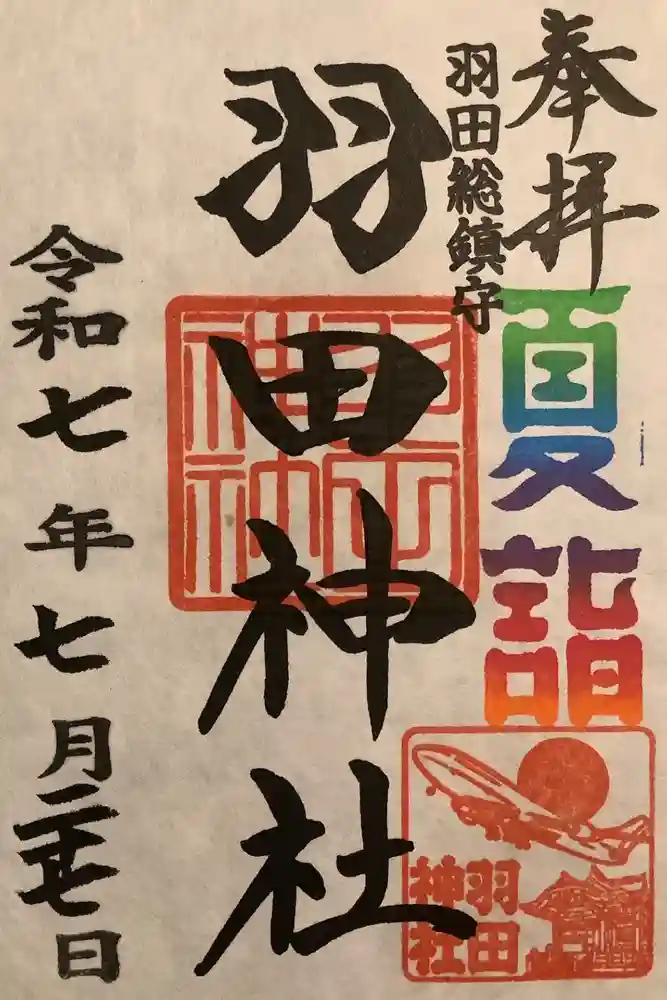 奉拝
夏詣
羽田総鎮守
羽田神社
令和七年七月二十七日
羽田
神社